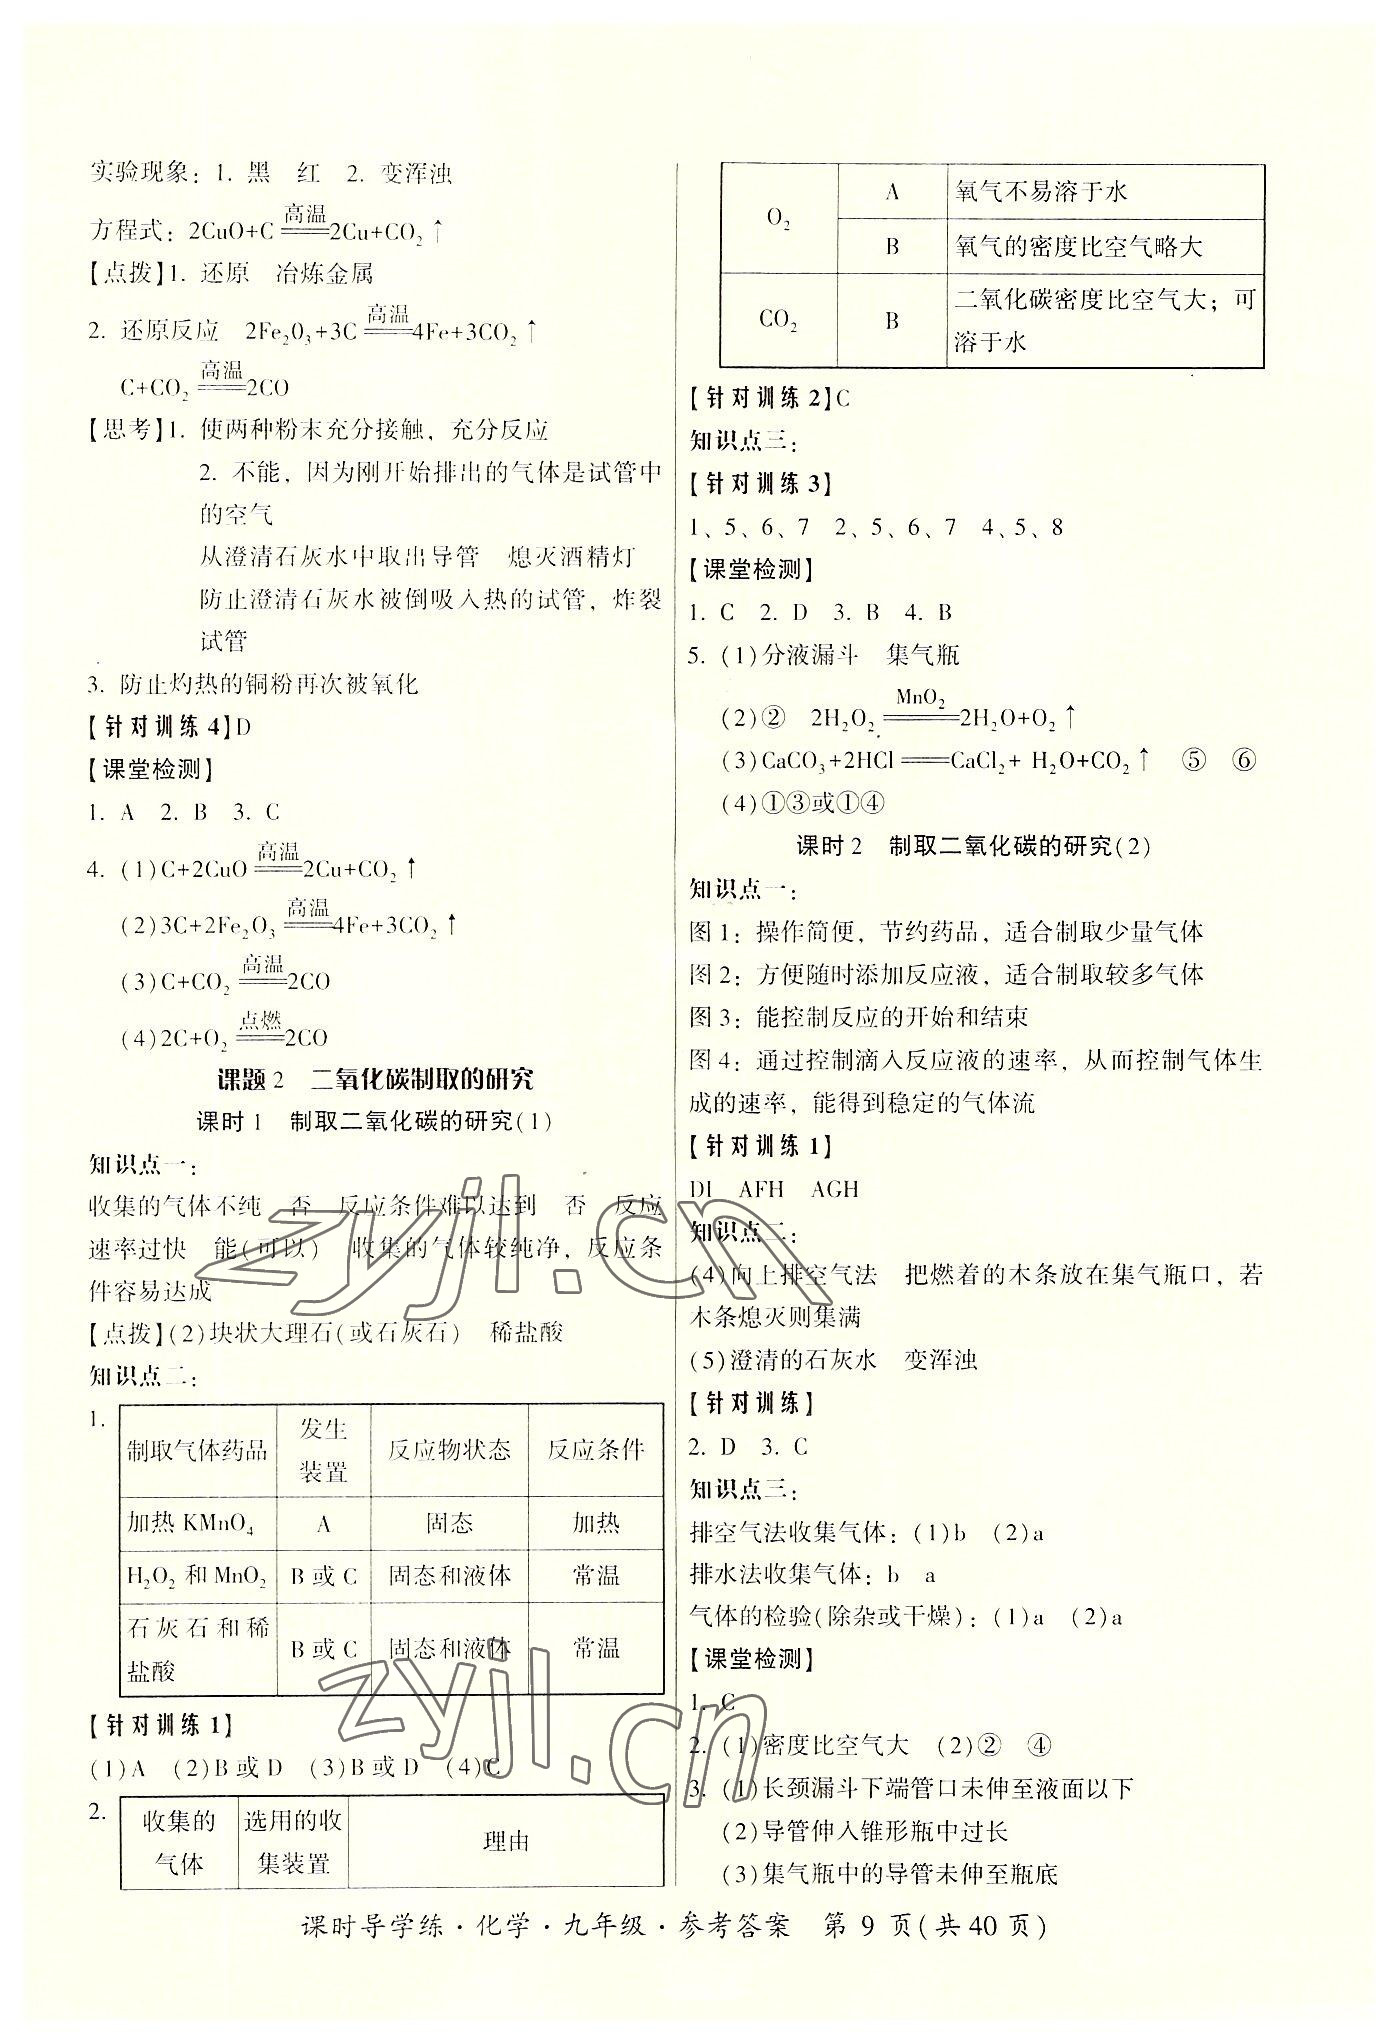 实验现象：1. 黑 红 2. 变浑浊
方程式：2CuO+C 高温 2Cu+CO₂↑
【点拨】1. 还原 冶炼金属
2. 还原反应 2Fe₂O₃+3C 高温 4Fe+3CO₂↑
C+CO₂ 高温 2CO
【思考】1. 使两种粉末充分接触，充分反应
2. 不能，因为刚开始排出的气体是试管中
的空气
从澄清石灰水中取出导管 熄灭酒精灯
防止澄清石灰水被倒吸入热的试管，炸裂
试管
3. 防止灼热的铜粉再次被氧化
【针对训练4】D
【课堂检测】
1. A 2. B 3. C
4. (1)C+2CuO 高温 2Cu+CO₂↑
(2)3C+2Fe₂O₃ 高温 4Fe+3CO₂↑
(3)C+CO₂ 高温 2CO
(4)2C+O₂ 点燃 2CO
课题2 二氧化碳制取的研究
课时1 制取二氧化碳的研究(1)
知识点一：
收集的气体不纯 否 反应条件难以达到 否 反应
速率过快 能(可以) 收集的气体较纯净，反应条
件容易达成
【点拨】(2)块状大理石(或石灰石) 稀盐酸
知识点二：
1.
制取气体药品 发生装置 反应物状态 反应条件
加热 KMnO₄ A 固态 加热
H₂O₂ 和 MnO₂ B 或 C 固态和液体 常温
石灰石和稀盐酸 B 或 C 固态和液体 常温
【针对训练1】
(1)A (2)B 或 D (3)B 或 D (4)C
2.
收集的气体 选用的收集装置 理由
O₂ A 氧气不易溶于水
B 氧气的密度比空气略大
CO₂ B 二氧化碳密度比空气大；可
溶于水
【针对训练2】C
知识点三：
【针对训练3】
1、5、6、7 2、5、6、7 4、5、8
【课堂检测】
1. C 2. D 3. B 4. B
5. (1)分液漏斗 集气瓶
(2)② 2H₂O₂ MnO₂ 2H₂O+O₂↑
(3)CaCO₃+2HCl══CaCl₂+ H₂O+CO₂↑ ⑤ ⑥
(4)①③或①④
课时2 制取二氧化碳的研究(2)
知识点一：
图1：操作简便，节约药品，适合制取少量气体
图2：方便随时添加反应液，适合制取较多气体
图3：能控制反应的开始和结束
图4：通过控制滴入反应液的速率，从而控制气体生
成的速率，能得到稳定的气体流
【针对训练1】
DI AFH AGH
知识点二：
(4)向上排空气法 把燃着的木条放在集气瓶口，若
木条熄灭则集满
(5)澄清的石灰水 变浑浊
【针对训练】
2. D 3. C
知识点三：
排空气法收集气体：(1)b (2)a
排水法收集气体：b a
气体的检验(除杂或干燥)：(1)a (2)a
【课堂检测】
1. C
2. (1)密度比空气大 (2)② ④
3. (1)长颈漏斗下端管口未伸至液面以下
(2)导管伸入锥形瓶中过长
(3)集气瓶中的导管未伸至瓶底
课时导学练·化学·九年级·参考答案 第 9 页(共 40 页)
zyjl.cn
zyjl.cn